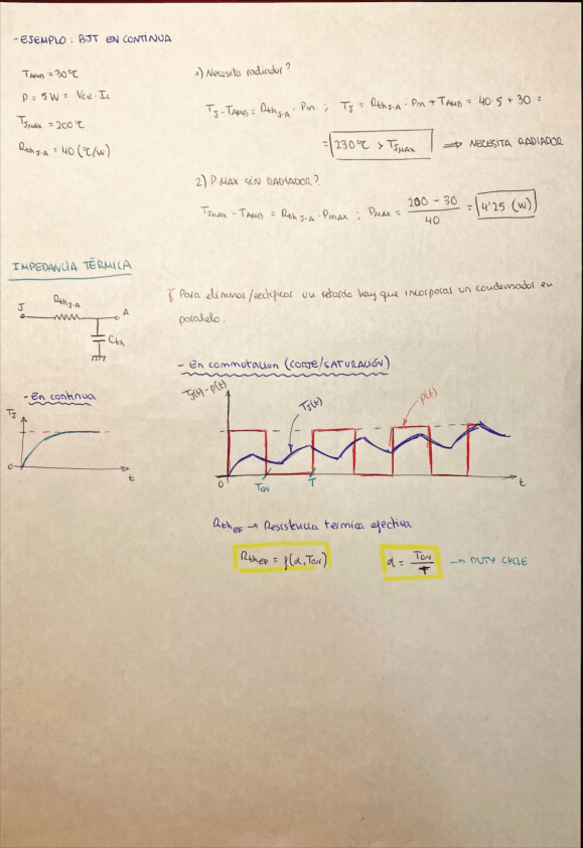 - EJEMPLO: BJT EN CONTINUA
TAMB = 30℃
P = 5W = VCE · IC
TJMAX = 200℃
RthJ-A = 40 (℃/W)
1) Necesita radiador?
TJ - TAMB = RthJ-A · Pm ; TJ = RthJ-A · Pm + TAMB = 40·5 + 30 =
= 230℃ > TJMAX ⟹ NECESITA RADIADOR
2) P.MAX SIN RADIADOR?
TJMAX - TAMB = RthJ-A · PMAX ; PMAX = (200 - 30)/40 = 4'25 (W)
IMPEDANCIA TÉRMICA
J RthJ-A A
Cth
Para eliminar/rectificar un retardo hay que incorporar un condensador en
paralelo.
- En conmutacion (CORTE/SATURACIÓN)
TJ(t) - p(t)
TJ(t)
p(t)
0 TON T t
- En continua
TJ
0 t
RthEF → Resistencia termica efectiva
RthEF = f(α, TON)
α = TON/T → DUTY CYCLE